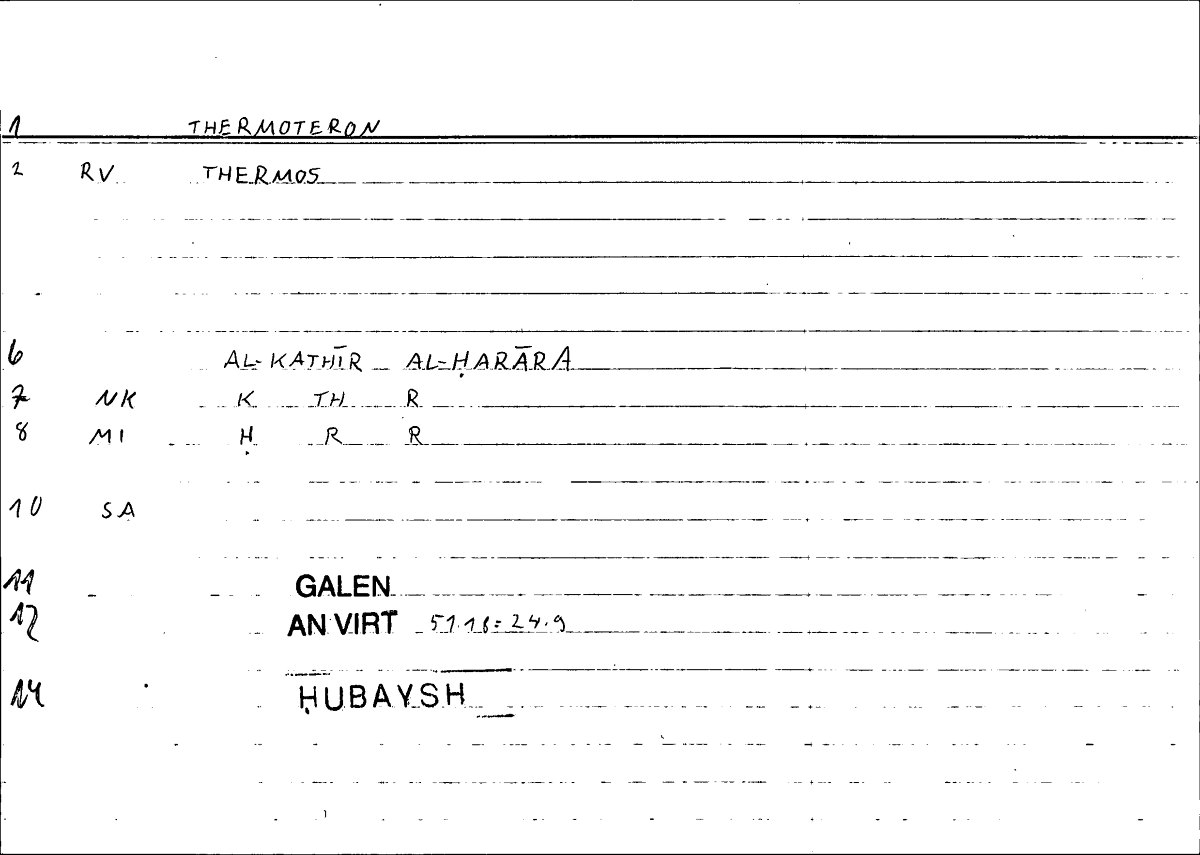 1 THERMOTERON
2 RV THERMOS
6 AL-KATHĪR AL-ḤARĀRA
7 NK K TH R
8 MI Ḥ R R
10 SA
11 GALEN
12 AN VIRT 51.18 = 24.9
14 ḤUBAYSH